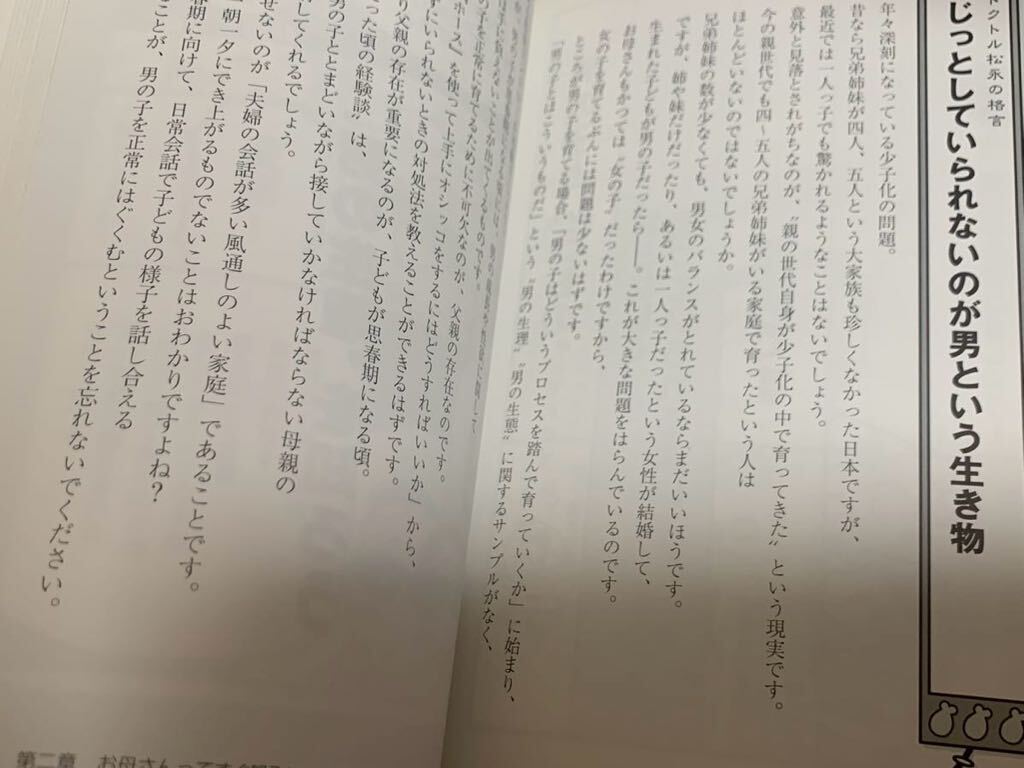 ドクトル松永の格言
じっとしていられないのが男という生き物
年々深刻になっている少子化の問題。
昔なら兄弟姉妹が四人、五人という大家族も珍しくなかった日本ですが、
最近では一人っ子でも驚かれるようなことはないでしょう。
意外と見落とされがちなのが、〝親の世代自身が少子化の中で育ってきた〟という現実です。
今の親世代でも四～五人の兄弟姉妹がいる家庭で育ったという人は
ほとんどいないのではないでしょうか。
兄弟姉妹の数が少なくても、男女のバランスがとれているならまだいいほうです。
ですが、姉や妹だけだったり、あるいは一人っ子だったという女性が結婚して、
生まれた子どもが男の子だったら――。これが大きな問題をはらんでいるのです。
お母さんもかつては〝女の子〟だったわけですから、
女の子を育てるぶんには問題は少ないはずです。
ところが男の子を育てる場合、「男の子はどういうプロセスを踏んで育っていくか」に始まり、
「男の子とはこういうものだ」という〝男の生理〟〝男の生態〟に関するサンプルがなく、
の子を正常に育てるために不可欠なのが、父親の存在なのです。
ホース〟を使って上手にオシッコをするにはどうすればいいか」から、
ずにいられないときの対処法を教えることができるはずです。
り父親の存在が重要になるのが、子どもが思春期になる頃。
った頃の経験談〟は、
男の子ととまどいながら接していかなければならない母親の
してくれるでしょう。
せないのが「夫婦の会話が多い風通しのよい家庭」であることです。
一朝一夕にでき上がるものでないことはおわかりですよね？
春期に向けて、日常会話で子どもの様子を話し合える
ことが、男の子を正常にはぐくむということを忘れないでください。
第二章　お母さんって